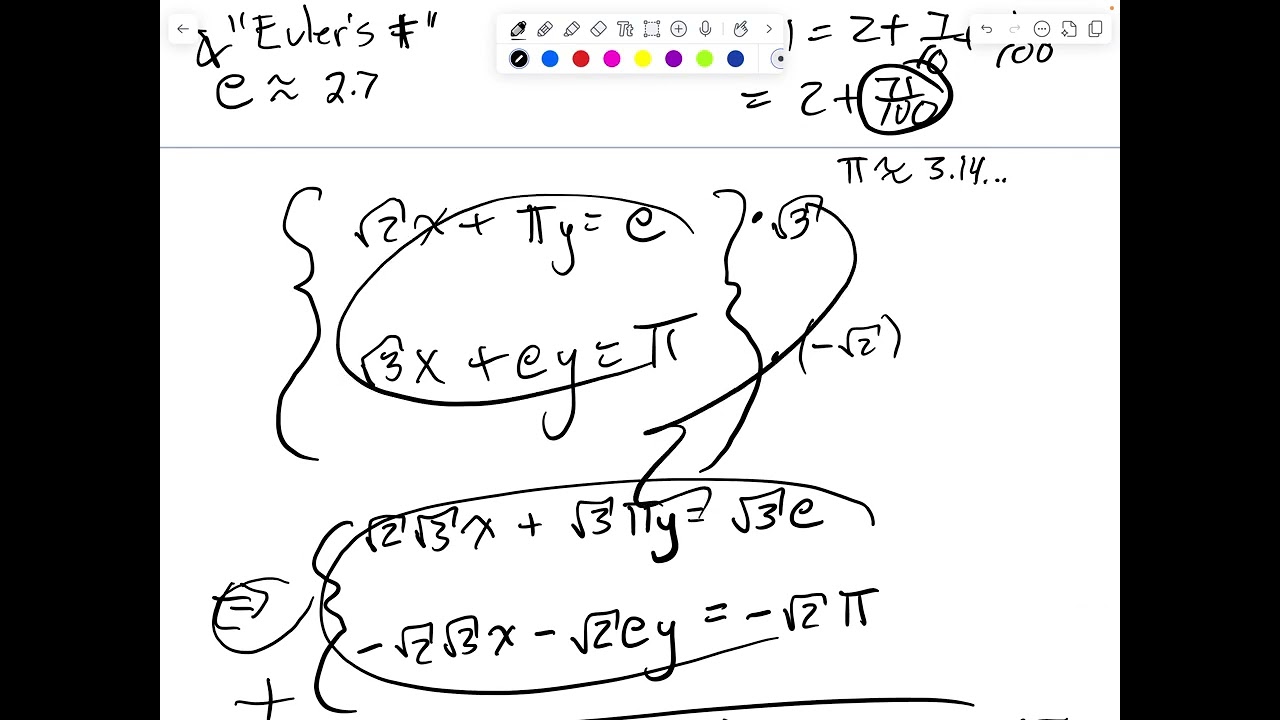 "Euler's #"
e ≈ 2.7
= 2 + 7/10 +
100
= 2 + 71/100
π ≈ 3.14...
√2x + πy = e
· √3
√3x + ey = π
· (-√2)
√2√3x + √3πy = √3e
-√2√3x - √2ey = -√2π
+